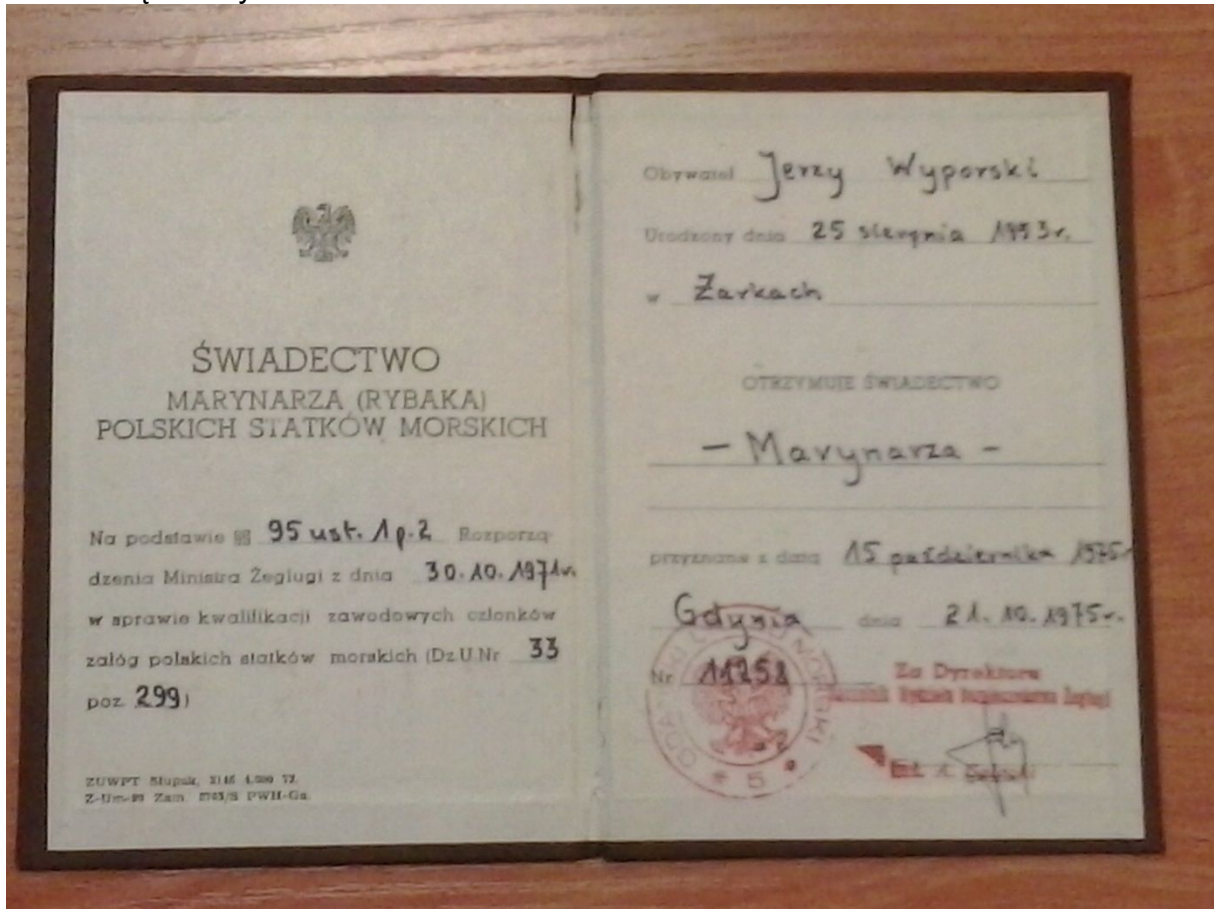 ŚWIADECTWO
MARYNARZA (RYBAKA)
POLSKICH STATKÓW MORSKICH
Na podstawie §§ 95 ust. 1 p. 2 Rozporzą-
dzenia Ministra Żeglugi z dnia 30.10.1971r.
w sprawie kwalifikacji zawodowych członków
załóg polskich statków morskich (Dz.U.Nr 33
poz. 299)
ZUWPT Słupsk,
Z-Um- Zam. PWH-Ga.
Obywatel Jerzy Wyporski
Urodzony dnia 25 sierpnia 1953r.
w Żarkach
OTRZYMUJE ŚWIADECTWO
- Marynarza -
przyznane z datą 15 października 1975
Gdynia dnia 21.10.1975r.
Nr 11258
Za Dyrektora
5